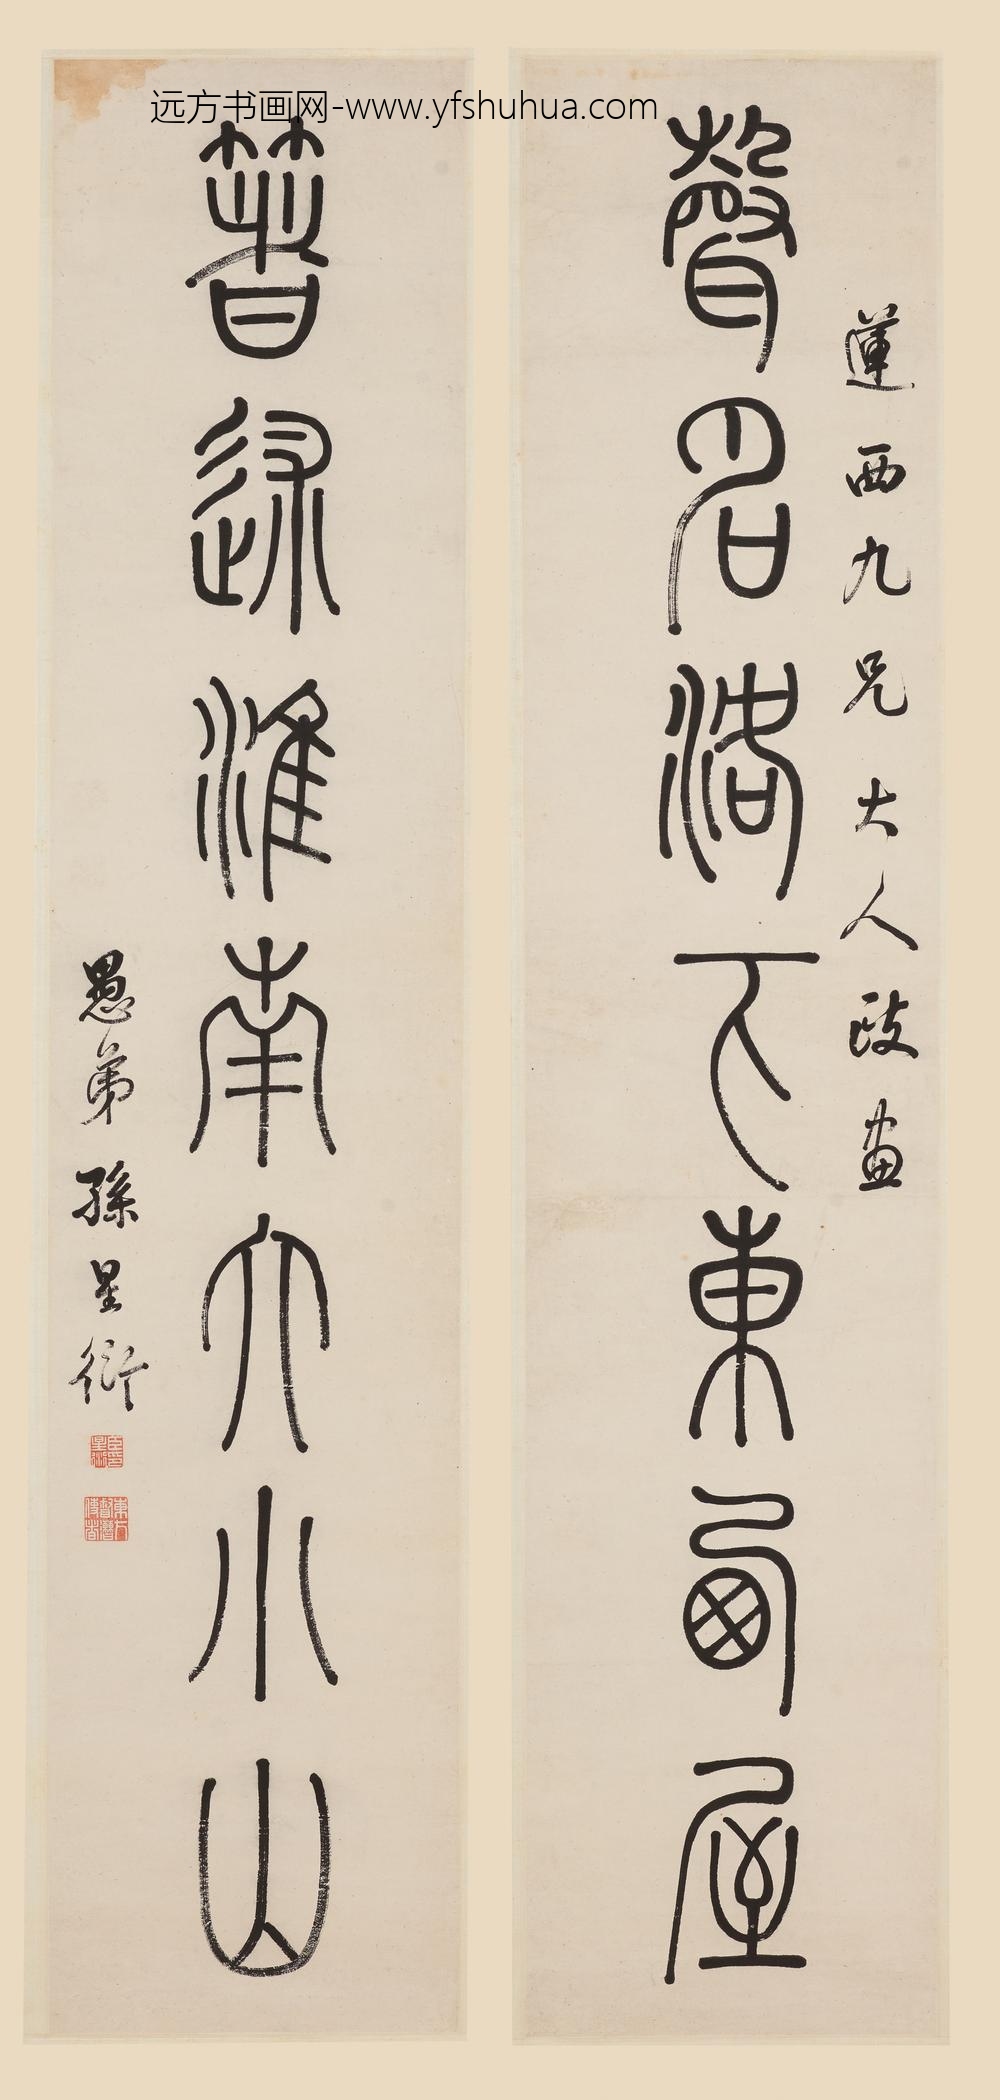 远方书画网-www.yfshuhua.com
蓮西九兄大人政畫
聲名洛下東西屋
著述淮南大小山
愚弟孫星衍
臣印星衍